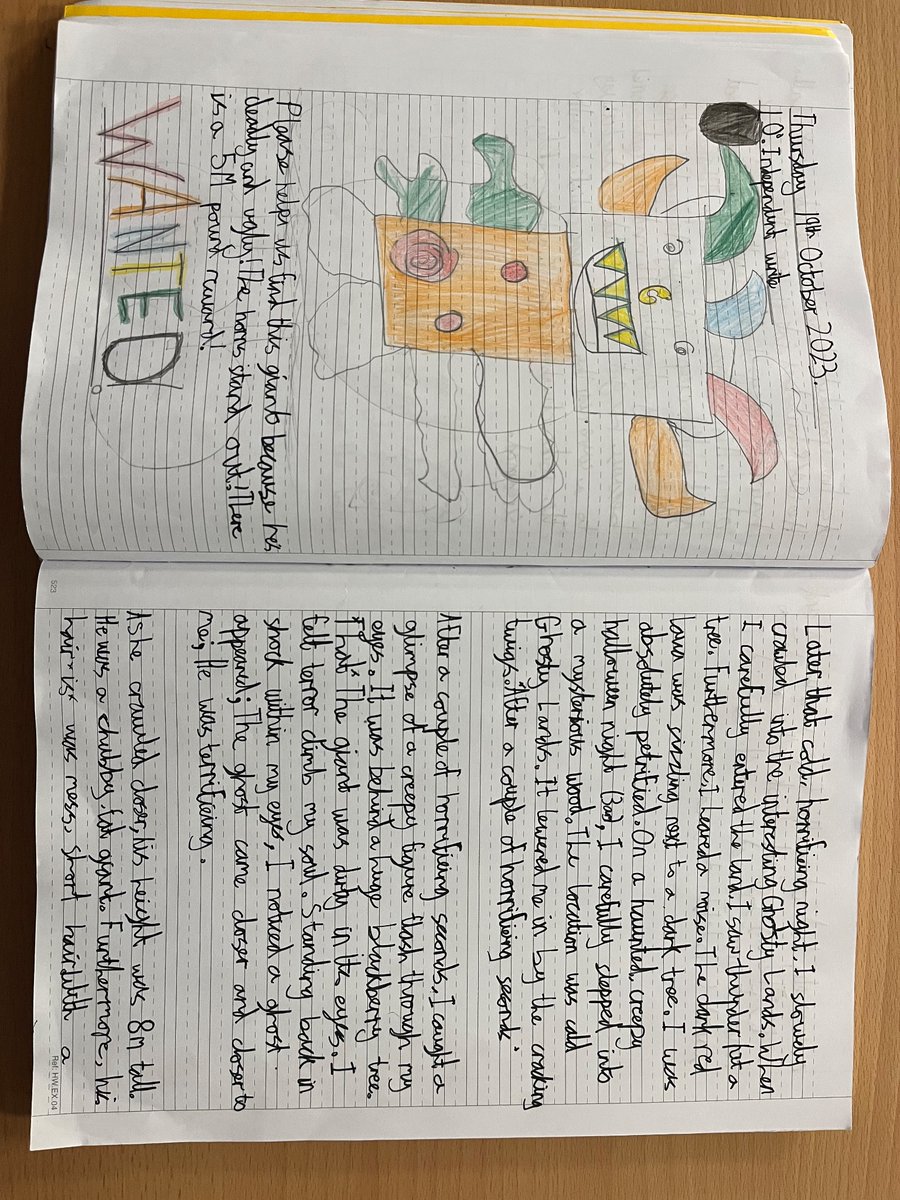 Thursday 19th October 2023.
LO: Independent write
WANTED
Please help us find this giant because hes
deadly and ugly! The horns stand out! There
is a 5M pound reward!
Later that cold, horrifieing night, I slowly
crawled into the interesting Ghosty Lands. When
I carefully entured the land, I saw thunder hit a
tree. Furthermore, I heared a noise. The dark red
lava was sizzling next to a dark tree. I was
absolutely petrified. On a haunted, creepy
halloween night (Bad), I carefully stepped into
a mysterious wood, The location was cald
Ghosty Lands. It towered me in by the cracking
twigs. After a couple of horrifieing seconds.
After a couple of horrifieing seconds, I caught a
glimpse of a creepy figure flash through my
eyes. It was behind a huge blackberry tree.
That The giant was dirty in its eyes. I
felt terror climb my soul. Standing back in
shock within my eyes, I noticed a ghost
appeared; The ghost came closer and closer to
me, He was terrifieing.
As he crawled closer, his height was 8m tall.
He was a chubby, fat giant. Furthermore, his
hair is was messy, short hair. With a
523
Ref: HW.EX.04